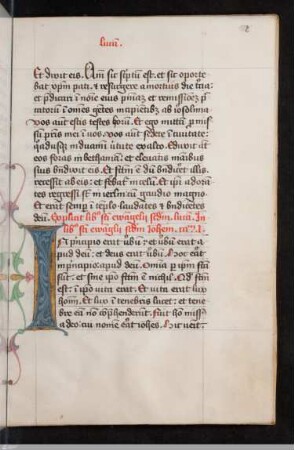 lucas.
Et dixit eis. Qm̄ sic scptum est. et sic oporte
bat xpm pati. ⁊ resurgere a mortuis die tcia:
et p̄dicari ī noīe eius pniam ⁊ remissioēz p̄
catorū ī omēs gētes incipiētibꝫ ab ierosolima
vos autē estis testes horū. Et ego mittā p̄mis
sū pris mei ī vos. vos autē sedete ī ciuitate:
quadusqꝫ īduami ūtute ex alto. Eduxit āt
eos foras in bethaniā: et eleuatis manibus
suis bn̄dixit eis. Et fctm ē dū bn̄diceret illis.
recessit ab eis: et ferebat in celū. Et ipi adorā
tes regressi st in ierlm cū gaudio magno.
Et erāt semp ī teplo laudātes ⁊ bn̄dicētes
deū. Explicit lib sci ewāgelii scdm. lucā. In
lib sci ewāgelii scdm Johem. ca. I.
IN prīcipio erat ūbū: et ūbū erat a
pud deū: et deus erat ūbū. Hoc erat
in prīcipio apud deū. Omīa p ipm fcā
sūt: et sine ipo fctm ē nichil. Qd fctm
est: ī ipo vita erat. Et vita erat lux
hoīm. Et lux ī tenebris lucet: et tene
bre eā nō cōphenderūt. Fuit hō miss9
a deo: cui nomē erāt iohes. Hic venit